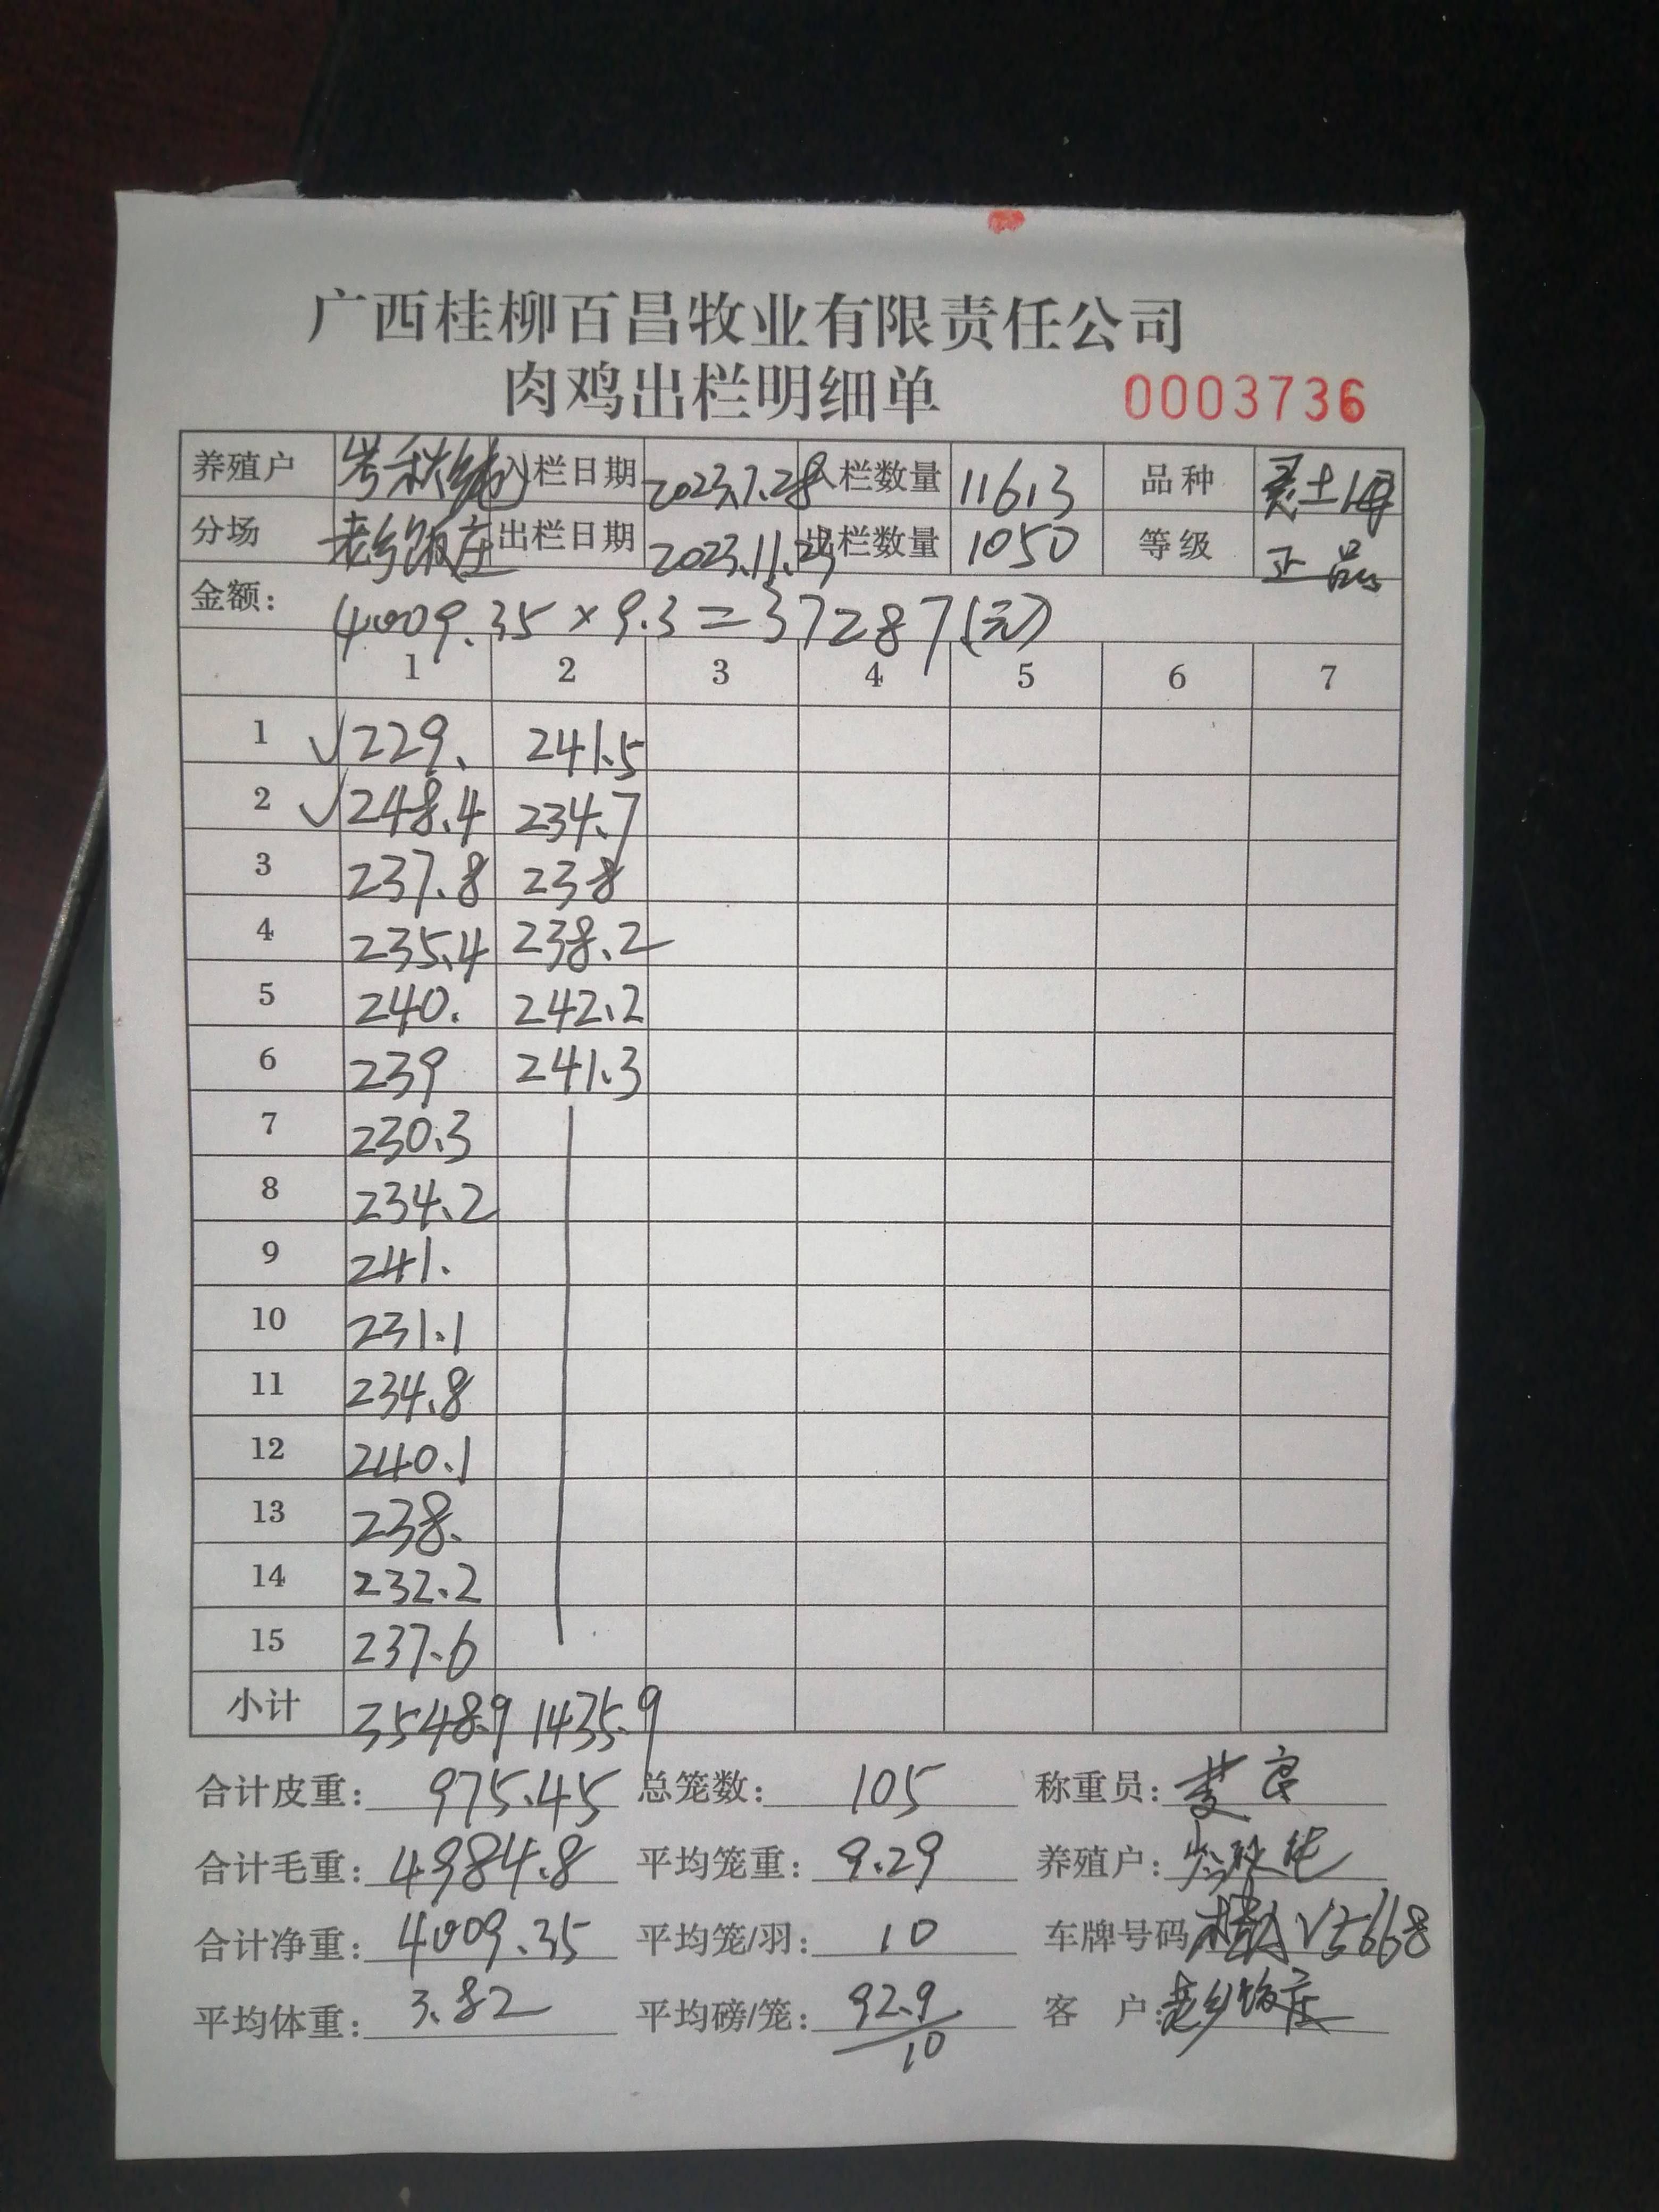 广西桂柳百昌牧业有限责任公司
肉鸡出栏明细单 0003736
养殖户 岑秋纯 入栏日期 2023.7.28 入栏数量 11613 品种
分场 老乡饭庄 出栏日期 2023.11.23 出栏数量 1050 等级 正品
金额: 4009.35×9.3=37287(元)
1 2 3 4 5 6 7
1 √229. 241.5
2 √248.4 234.7
3 237.8 238
4 235.4 238.2
5 240. 242.2
6 239 241.3
7 230.3
8 234.2
9 241.
10 231.1
11 234.8
12 240.1
13 238.
14 232.2
15 237.6
小计 3548.9 1435.9
合计皮重: 975.45 总笼数: 105 称重员:
合计毛重: 4984.8 平均笼重: 9.29 养殖户: 岑秋纯
合计净重: 4009.35 平均笼/羽: 10 车牌号码 V5668
平均体重: 3.82 平均磅/笼: 92.9/10 客 户: 老乡饭庄